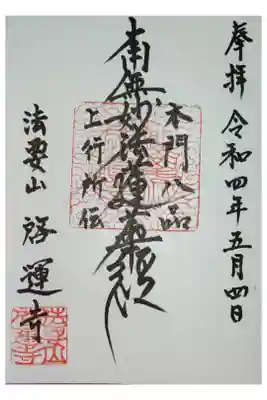 奉拝 令和四年五月四日
本門八品
南無妙法蓮華経
上行所伝
法要山 啓運寺